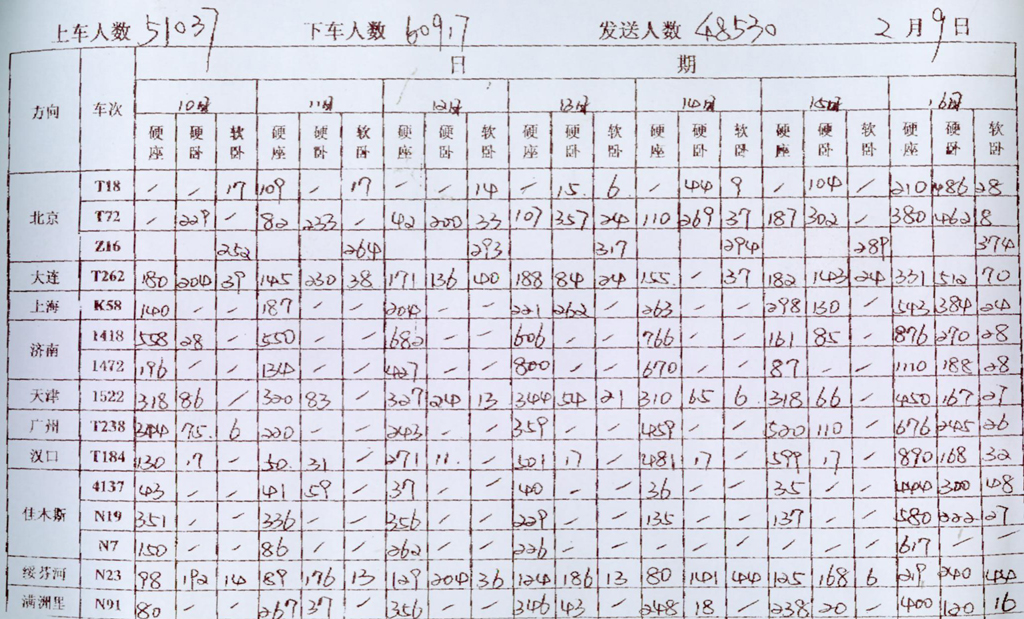 上车人数 51037 下车人数 60917 发送人数 48530 2月9日
方向 车次 日 期
10日 11日 12日 13日 14日 15日 16日
硬座 硬卧 软卧 硬座 硬卧 软卧 硬座 硬卧 软卧 硬座 硬卧 软卧 硬座 硬卧 软卧 硬座 硬卧 软卧 硬座 硬卧 软卧
北京 T18 / / 17 109 / 17 / / 14 / 15 6 / 44 9 / 104 / 210 486 28
T72 / 229 / 82 233 / 42 200 33 107 357 24 110 269 37 187 302 / 380 462 8
Z16 252 264 293 317 294 289 374
大连 T262 180 204 39 145 230 38 171 136 40 188 84 24 155 / 37 182 143 24 331 512 70
上海 K58 140 / / 187 / / 204 / / 221 262 / 263 / / 298 130 / 543 384 24
济南 1418 558 28 / 550 / / 682 / / 606 / / 766 / / 161 85 / 876 270 28
1472 196 / / 134 / / 427 / / 800 / / 670 / / 87 / / 1110 188 28
天津 1522 318 86 / 320 83 / 327 24 13 344 54 21 310 65 6 318 66 / 450 167 27
广州 T238 344 75 6 220 / / 243 / / 359 / / 459 / / 520 110 / 676 245 26
汉口 T184 130 17 / 50 31 / 271 11 / 501 17 / 481 17 / 599 17 / 890 168 32
佳木斯 4137 43 / / 41 59 / 37 / / 40 / / 36 / / 35 / / 444 300 48
N19 351 / / 336 / / 356 / / 229 / / 135 / / 137 / / 580 222 27
N7 150 / / 86 / / 262 / / 226 / / / / / / / / 617 / /
绥芬河 N23 98 192 14 89 176 13 129 204 36 124 186 13 80 141 44 125 168 6 219 240 44
满洲里 N91 80 / / 267 37 / 356 / / 346 43 / 248 18 / 238 20 / 400 120 16